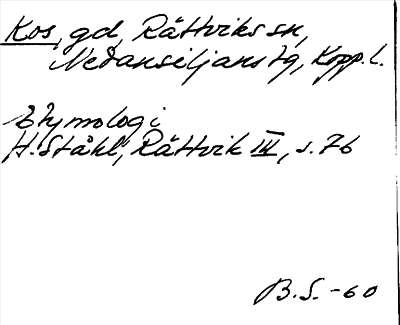 Kos, gd, Rättviks sn,
Nedansiljans tg, Kopp. l.
Etymologi
H. Ståhl, Rättvik III, s. 76
B. S. -60